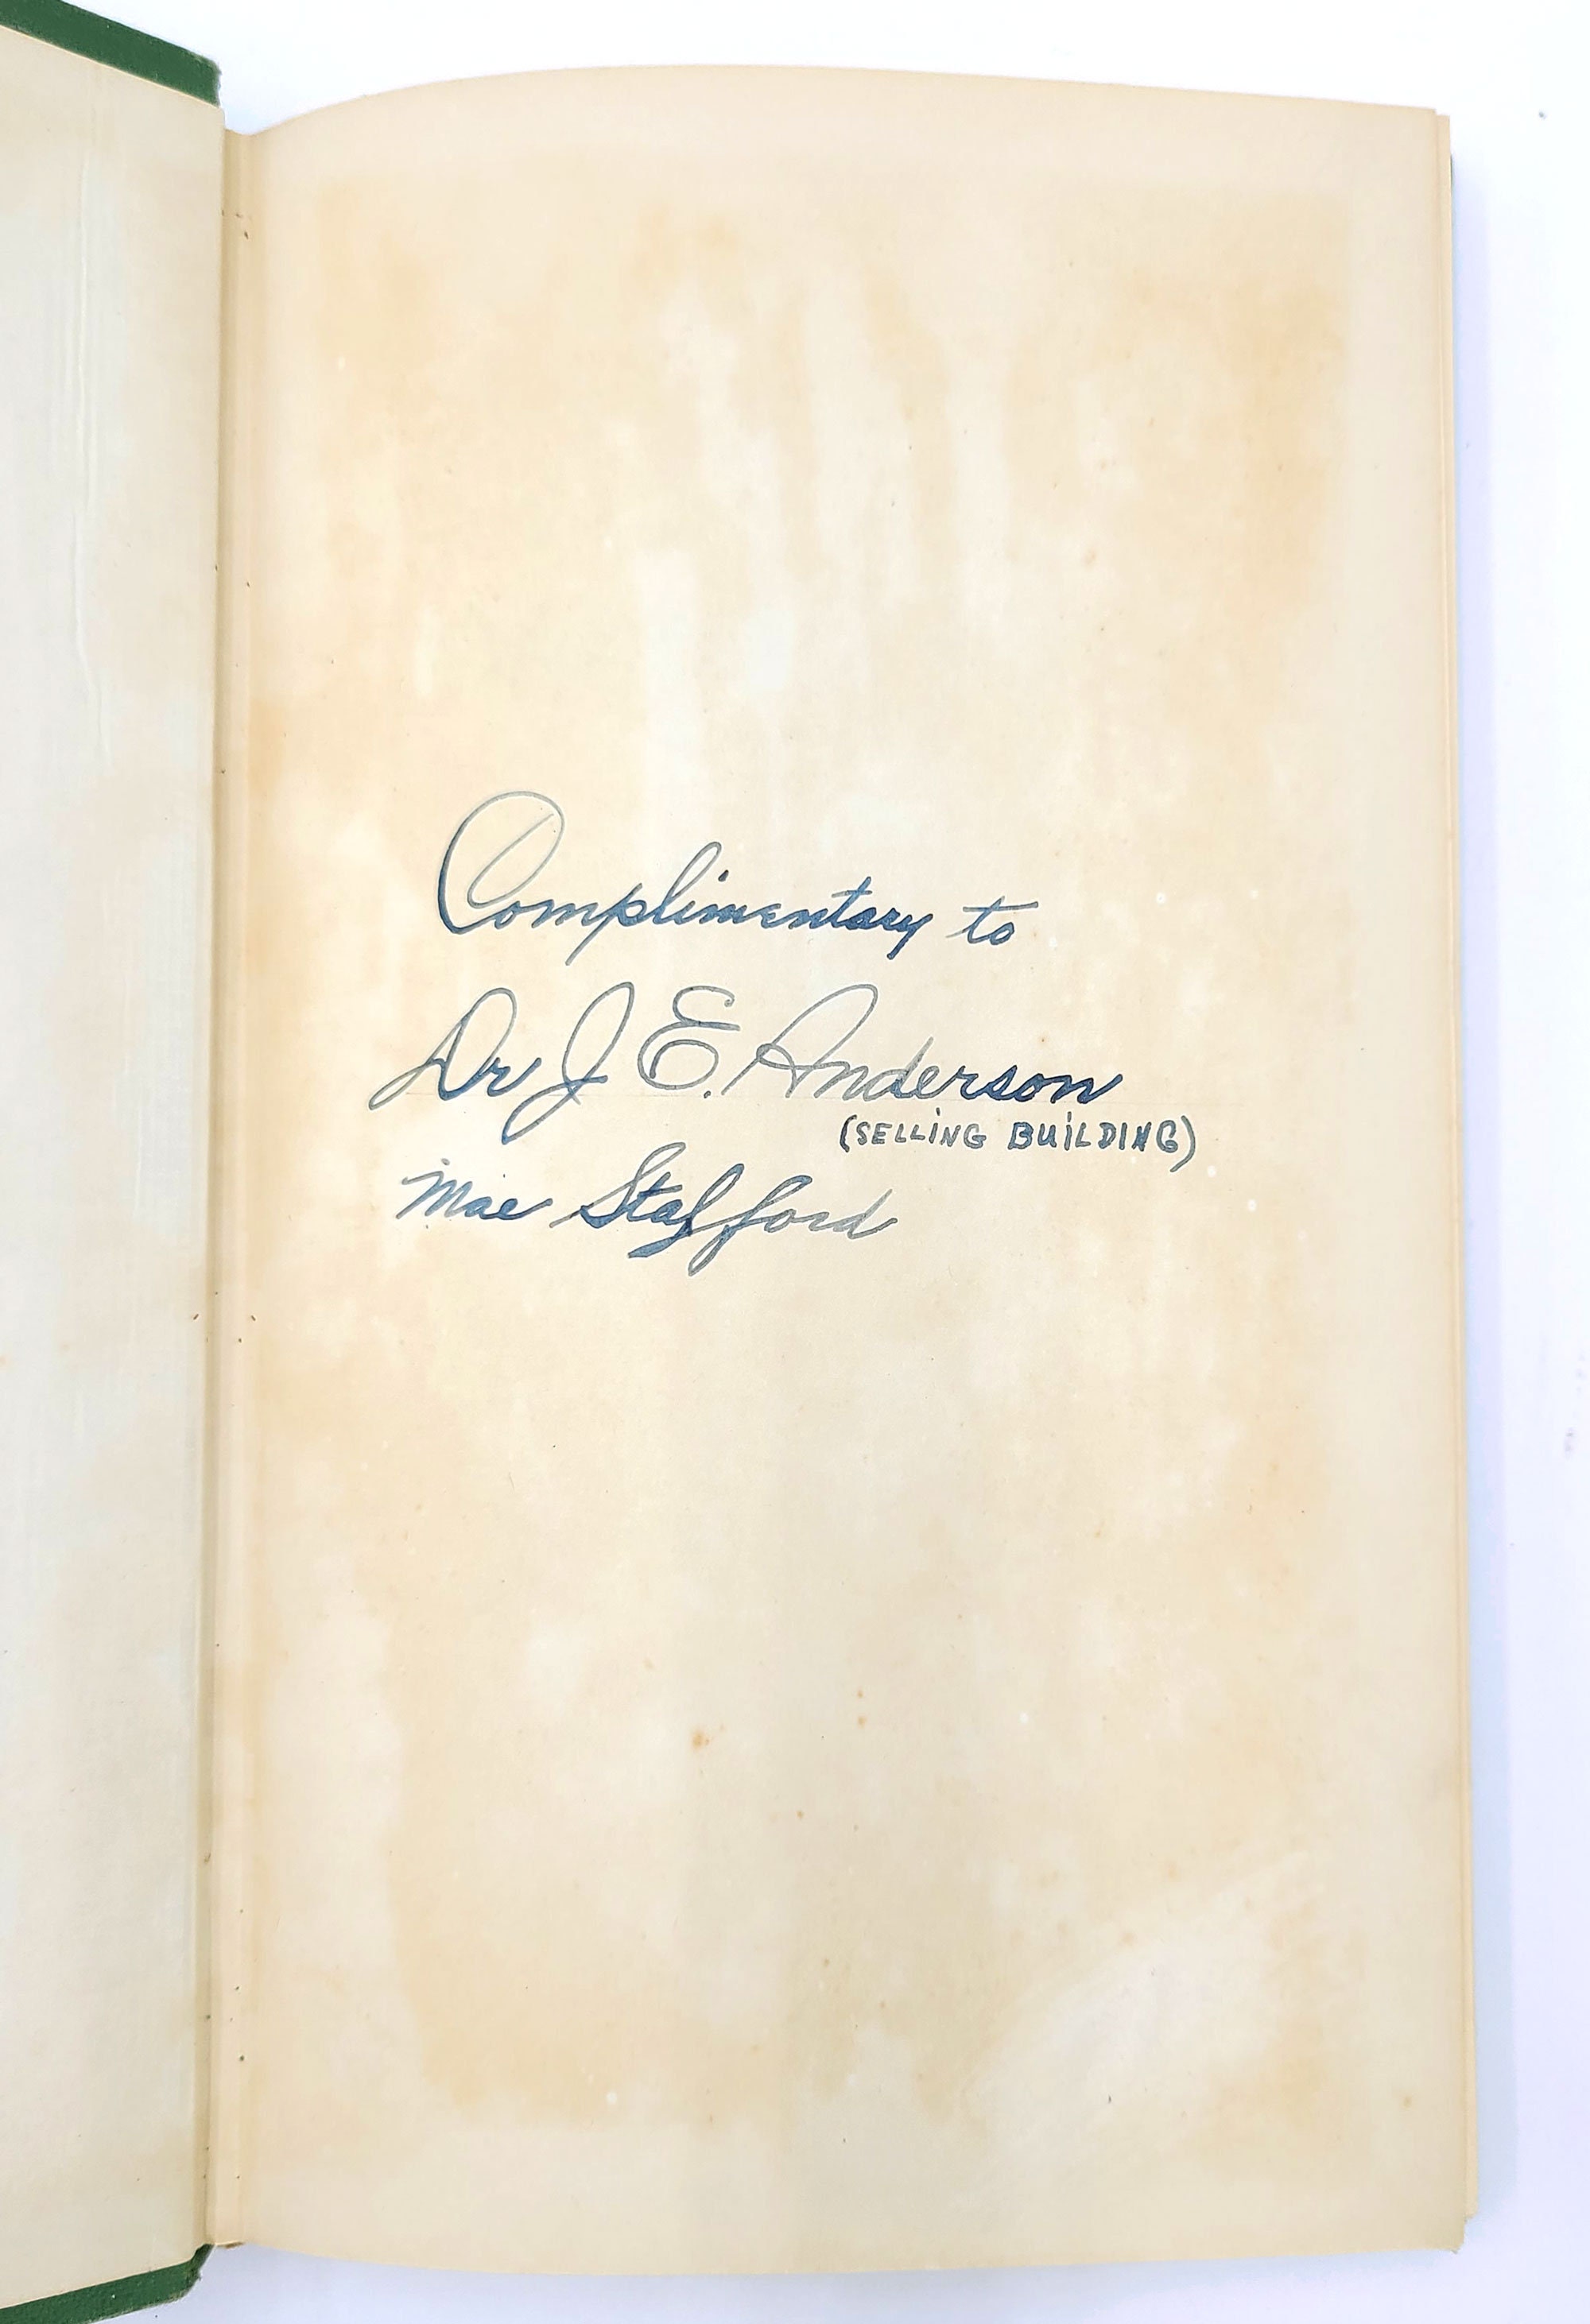 Complimentary to
Dr J E. Anderson
(SELLING BUILDING)
Mae Stafford